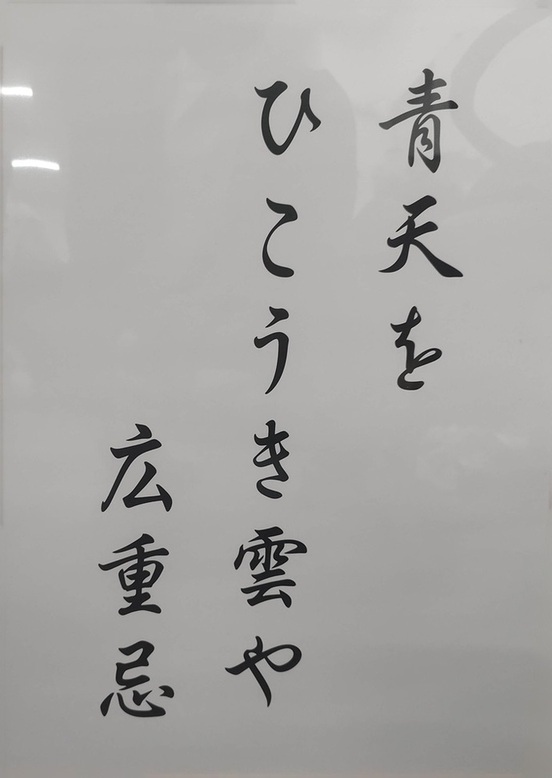 青天を
ひこうき雲や
広重忌